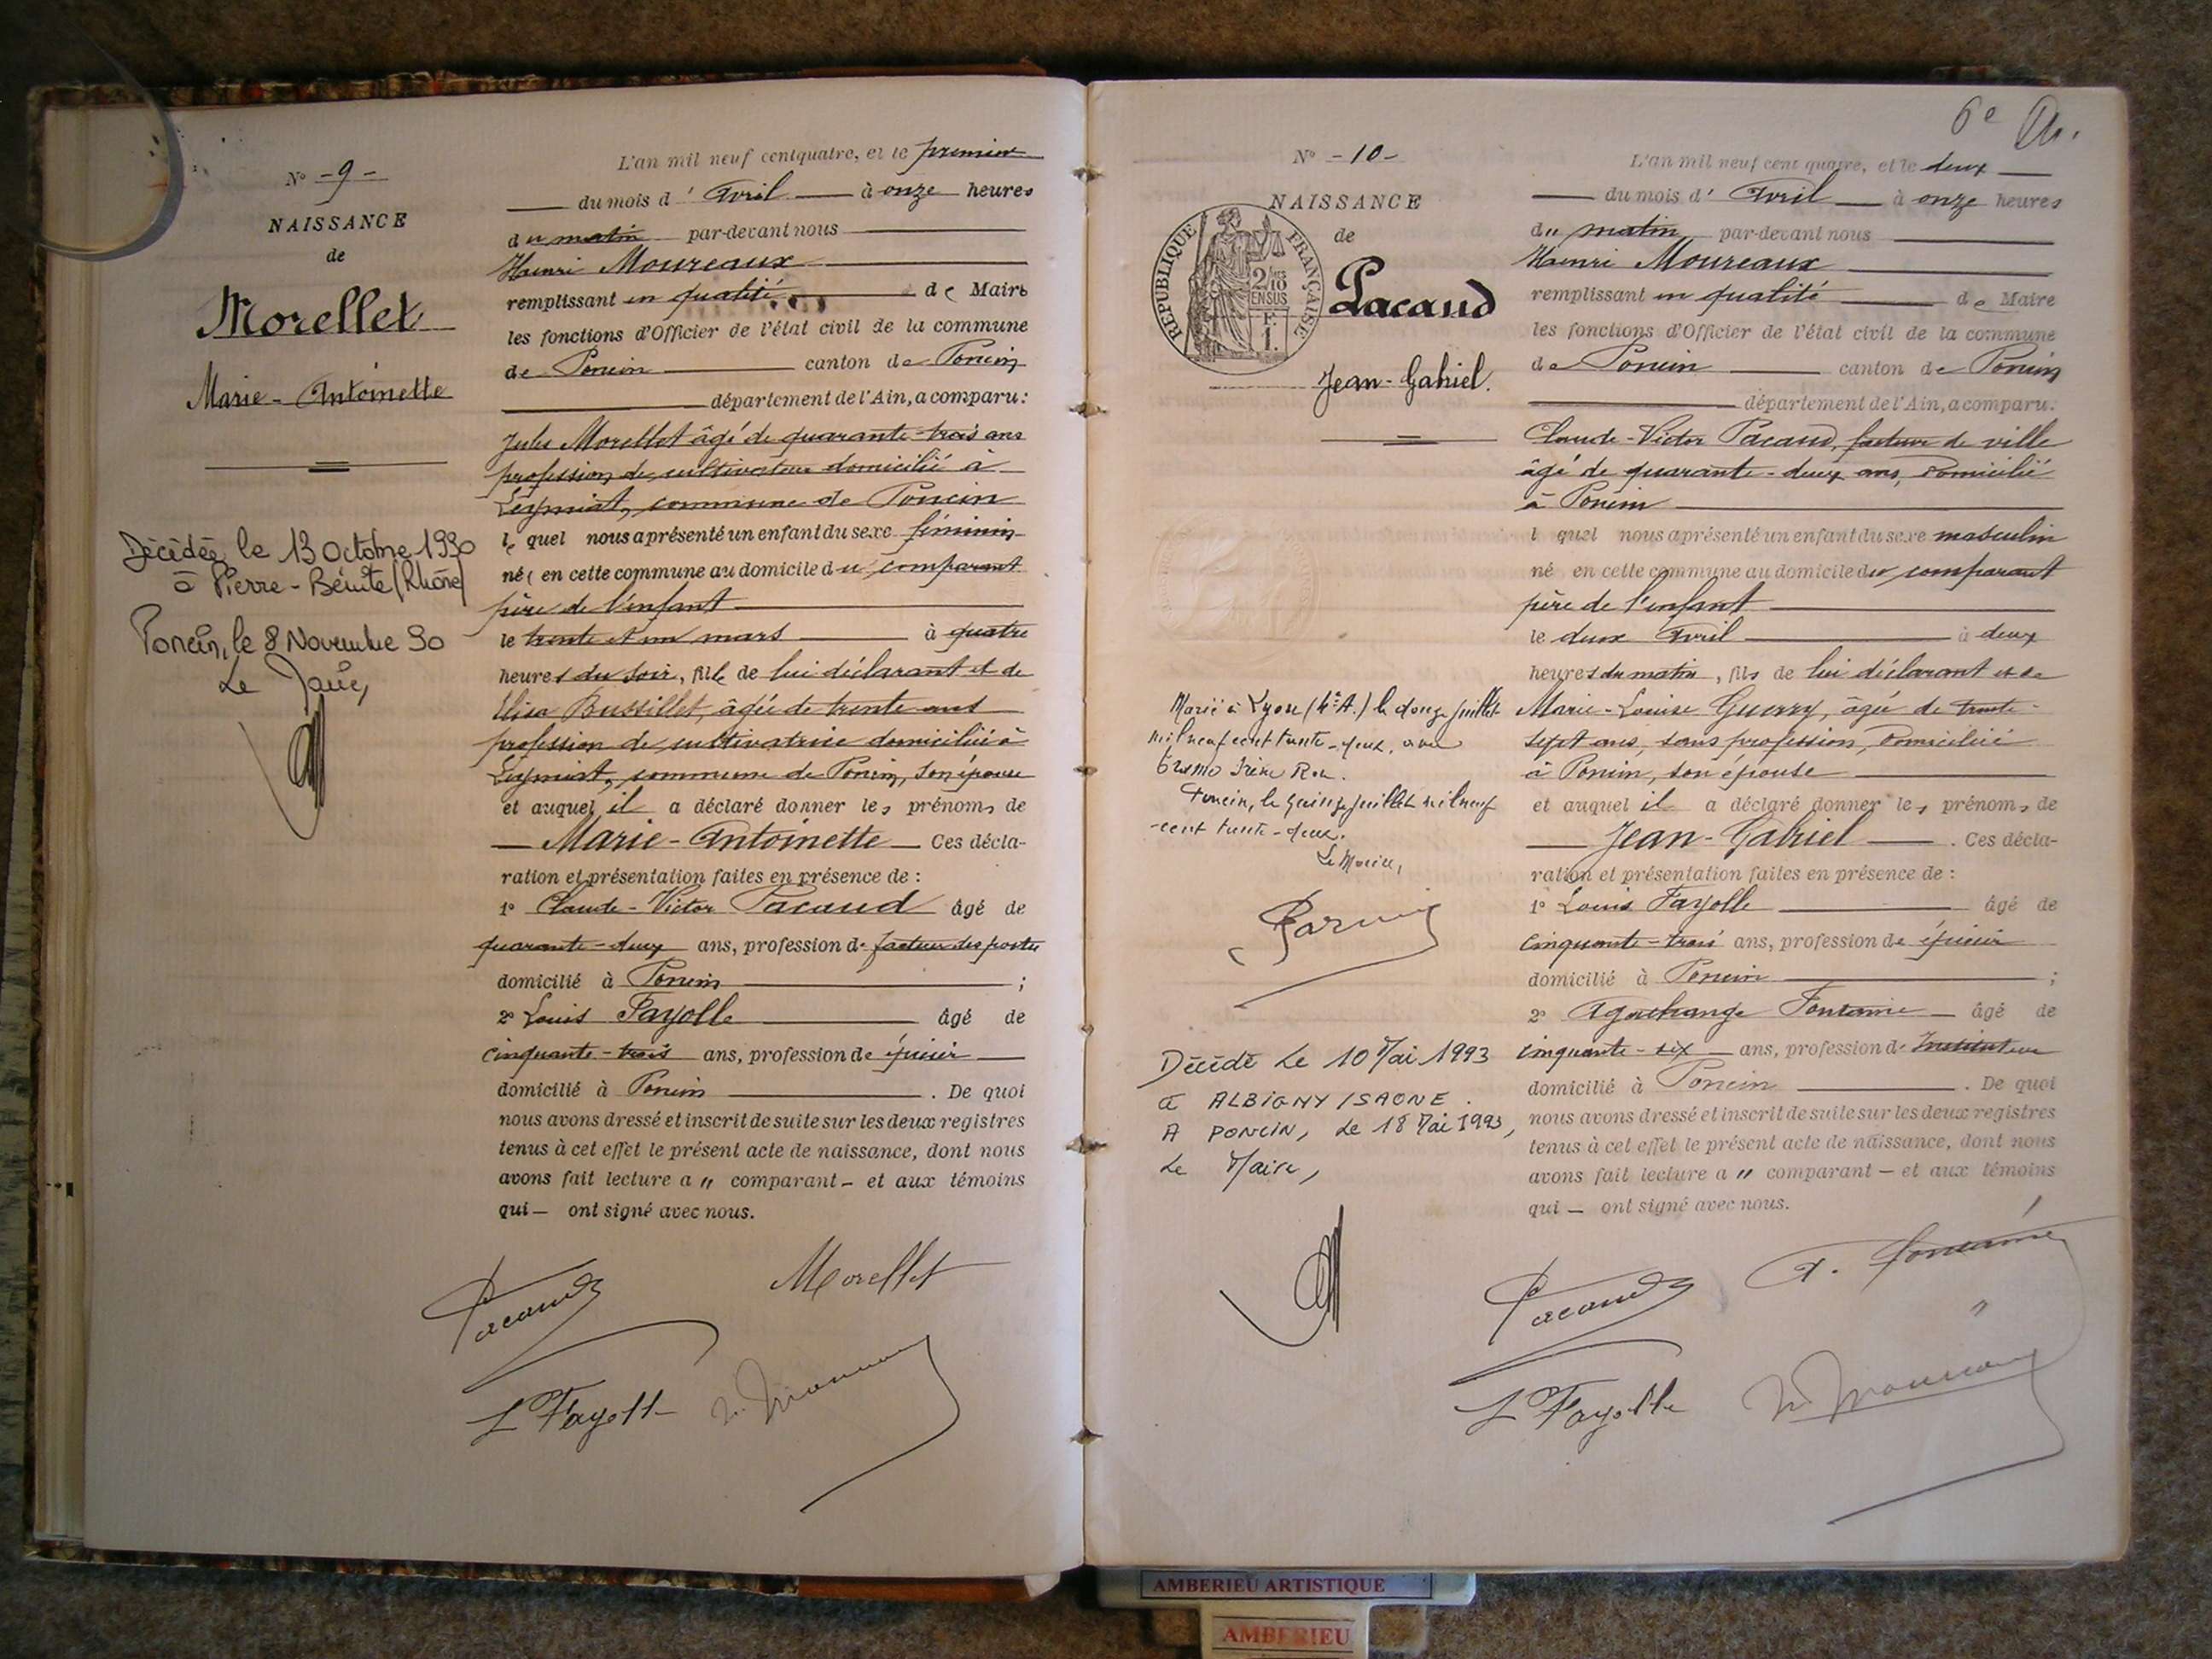 N° - 9 -
NAISSANCE
de
Morellet
Marie - Antoinette
Décédée le 13 Octobre 1990
à Pierre-Bénite (Rhône)
Poncin, le 8 Novembre 90
Le Maire,
L'an mil neuf cent quatre, et le premier
du mois d' Avril à onze heures
du matin par-devant nous
Henri Moureaux
remplissant en qualité de Maire
les fonctions d'Officier de l'état civil de la commune
de Poncin canton de Poncin
département de l'Ain, a comparu:
Jules Morellet âgé de quarante-trois ans
profession de cultivateur domicilié à
Leymiat, commune de Poncin
le quel nous a présenté un enfant du sexe féminin
née en cette commune au domicile du comparant
père de l'enfant
le trente et un mars à quatre
heures du soir, fille de lui déclarant et de
Elisa Bussillet, âgée de trente ans
profession de cultivatrice domiciliée à
Leymiat, commune de Poncin, son épouse
et auquel il a déclaré donner les prénoms de
Marie - Antoinette Ces décla-
ration et présentation faites en présence de :
1° Claude - Victor Pacaud âgé de
quarante - deux ans, profession de facteur des postes
domicilié à Poncin ;
2° Louis Fayolle âgé de
cinquante - trois ans, profession de épicier
domicilié à Poncin . De quoi
nous avons dressé et inscrit de suite sur les deux registres
tenus à cet effet le présent acte de naissance, dont nous
avons fait lecture a " comparant - et aux témoins
qui - ont signé avec nous.
Pacaud Morellet
L Fayolle H. Moureaux
6e
N° - 10 -
NAISSANCE
de
RÉPUBLIQUE FRANÇAISE
2/10
EN SUS
Pacaud
Jean - Gabriel.
Marié à Lyon (4e A.) le douze juillet
mil neuf cent trente-deux, avec
Irène
Poncin, le quinze juillet mil neuf
cent trente-deux.
Le Maire,
Décédé Le 10 Mai 1993
à ALBIGNY / SAONE.
A PONCIN, Le 18 Mai 1993,
Le Maire,
L'an mil neuf cent quatre, et le deux
du mois d' Avril à onze heures
du matin par-devant nous
Henri Moureaux
remplissant en qualité de Maire
les fonctions d'Officier de l'état civil de la commune
de Poncin canton de Poncin
département de l'Ain, a comparu:
Claude-Victor Pacaud, facteur de ville
âgé de quarante-deux ans, domicilié
à Poncin
l quel nous a présenté un enfant du sexe masculin
né en cette commune au domicile du comparant
père de l'enfant
le deux Avril à deux
heures du matin, fils de lui déclarant et de
Marie-Louise Guerry, âgée de trente-
sept ans, sans profession, domiciliée
à Poncin, son épouse
et auquel il a déclaré donner les prénoms de
Jean - Gabriel . Ces décla-
ration et présentation faites en présence de :
1° Louis Fayolle âgé de
cinquante - trois ans, profession de épicier
domicilié à Poncin ;
2° Agnechange Fontaine âgé de
cinquante - six ans, profession d' Instituteur
domicilié à Poncin . De quoi
nous avons dressé et inscrit de suite sur les deux registres
tenus à cet effet le présent acte de naissance, dont nous
avons fait lecture a " comparant - et aux témoins
qui - ont signé avec nous.
Pacaud A. Fontaine
L Fayolle H. Moureaux
AMBERIEU ARTISTIQUE
AMBERIEU